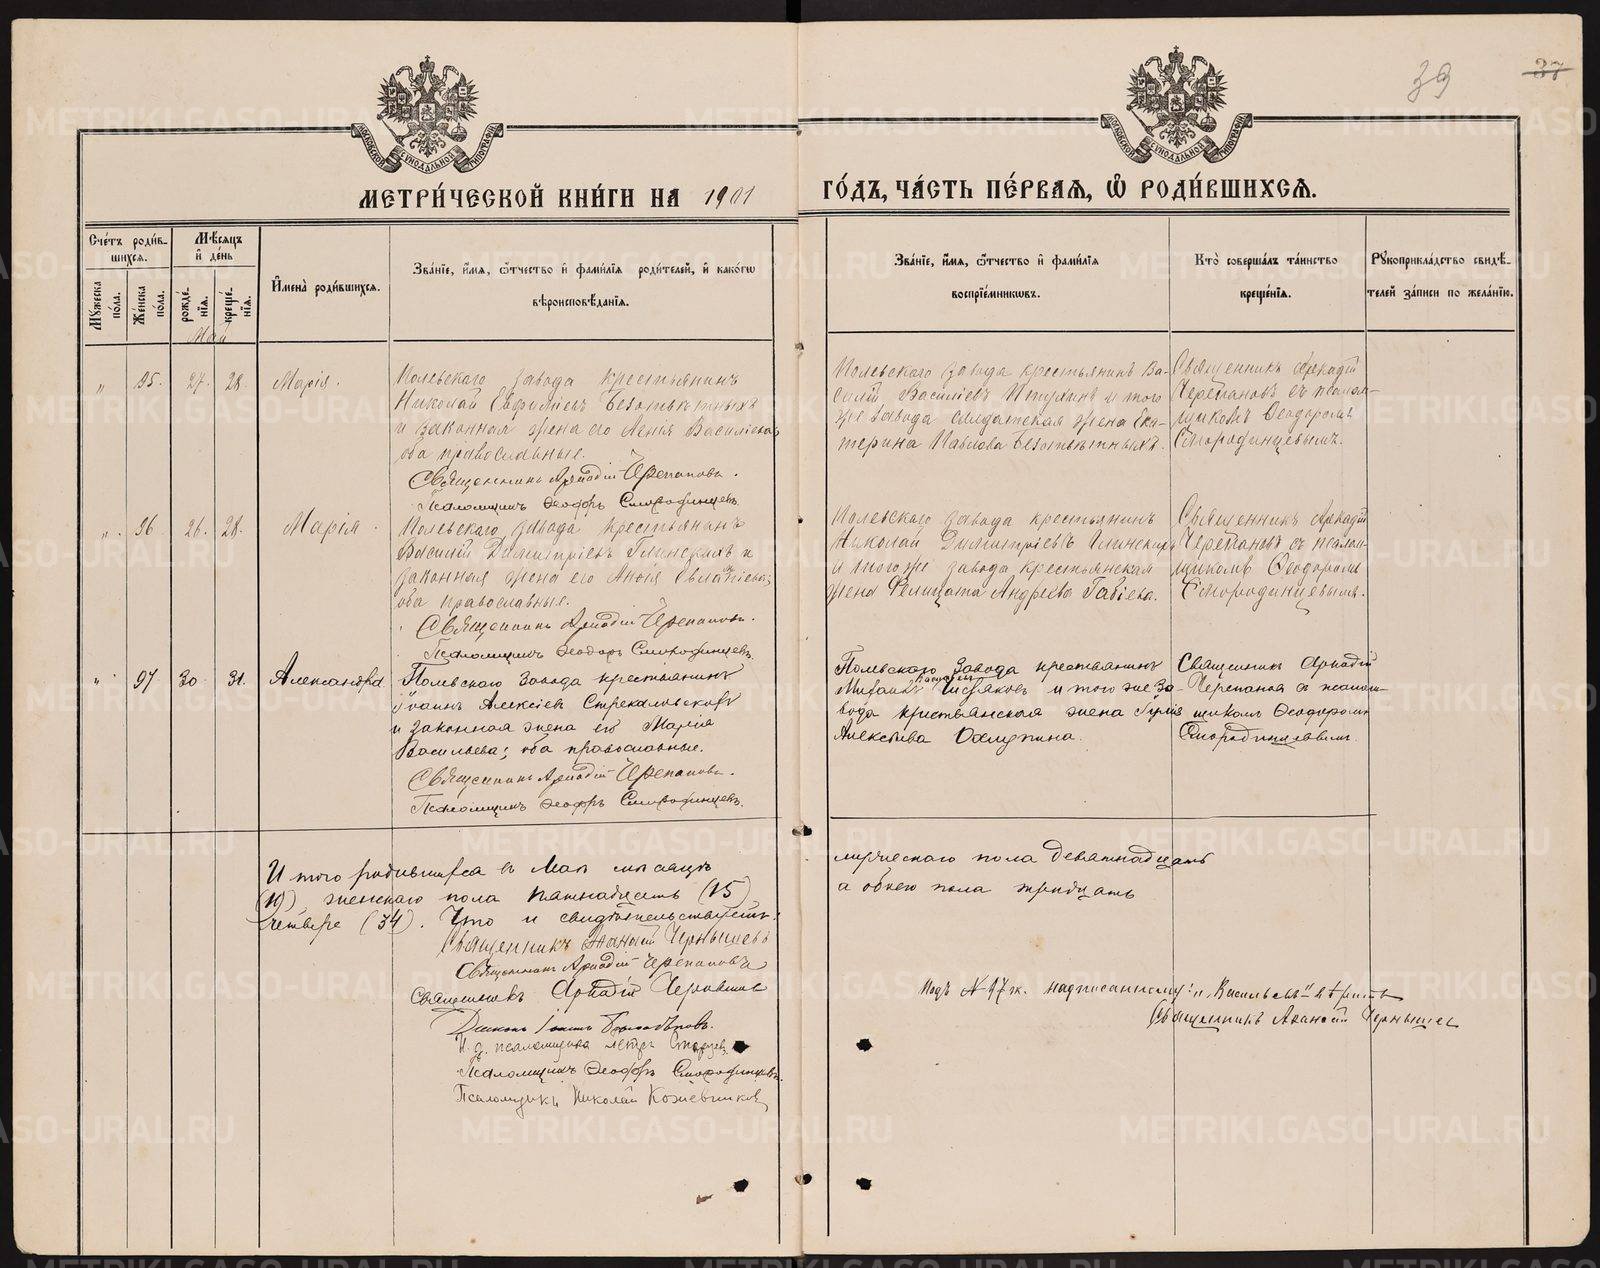 39
37
МОСКОВСКОЙ СѴНОДАЛЬНОЙ ТИПОГРАФІИ
МОСКОВСКОЙ СѴНОДАЛЬНОЙ ТИПОГРАФІИ
МЕТРИ́ЧЕСКОЙ КНИ́ГИ НА 1901
ГО́ДЪ, ЧА́СТЬ ПЕ́РВАѦ, Ѽ РОДИ́ВШИХСѦ.
Сче́тъ роди́в-
шихсѧ.
Мѣ́сѧцъ
и҆ де́нь
Мꙋ́жеска по́ла.
Же́нска по́ла.
рожде́-нїѧ.
креще́-нїѧ.
И҆мена̀ роди́вшихсѧ.
Зва́нїе, и҆́мѧ, ѻ҆́тчество и҆ фами́лїѧ роди́телей, и҆ како́гѡ
вѣроисповѣ́данїѧ.
Зва́нїе, и҆́мѧ, ѻ҆́тчество и҆ фами́лїѧ
воспрїе́мникѡвъ.
Кто̀ соверша́лъ та́инство
креще́нїѧ.
Рꙋкоприкла́дство свидѣ́-
телей за́писи по жела́нїю.
Май
„ 95. 27. 28. Марія.
Полевскаго завода крестьянинъ
Николай Евфиміевъ Безотвѣтныхъ
и законная жена его Васильева,
оба православные.
Священникъ Аркадій Черепановъ.
Псаломщикъ Ѳеодоръ Смородинцевъ.
Полевскаго завода крестьянинъ Ва-
силій Васильевъ и того
же завода солдатская жена Ека-
терина Павлова Безотвѣтныхъ.
Священникъ Аркадій
Черепановъ съ псалом-
щикомъ Ѳеодоромъ
Смородинцевымъ.
„ 96. 26. 28. Марія.
Полевскаго завода крестьянинъ
Василій Димитріевъ Глинскихъ и
законная жена его Анна
оба православные.
Священникъ Аркадій Черепановъ.
Псаломщикъ Ѳеодоръ Смородинцевъ.
Полевскаго завода крестьянинъ
Николай Димитріевъ Глинскихъ
и того же завода крестьянская
жена Фелицата Андреева
Священникъ Аркадій
Черепановъ съ псалом-
щикомъ Ѳеодоромъ
Смородинцевымъ.
„ 97 30 31. Александра
Полевскаго Завода крестьянинъ
Іоаннъ Алексіевъ Стрекаловскихъ
и законная жена его Марія
Васильева; оба православные.
Священникъ Аркадій Черепановъ.
Псаломщикъ Ѳеодоръ Смородинцевъ.
Полевскаго Завода крестьянинъ
Михаилъ Васильевъ и того же За-
вода крестьянская жена
Алексѣева
Священникъ Аркадій
Черепановъ съ псалом-
щикомъ Ѳеодоромъ
Смородинцевымъ.
Итого родившихся въ Маѣ мѣсяцѣ
мужескаго пола девятнадцать
(19) женскаго пола пятнадцать (15)
а обоего пола тридцать
четыре (34). Что и свидѣтельствуемъ:
Священникъ Аѳанасій Чернышевъ
Священникъ Аркадій Черепановъ
Священникъ Аркадій
Діаконъ Іоаннъ
И. д. псаломщика Петръ
Псаломщикъ Ѳеодоръ Смородинцевъ.
Псаломщикъ Николай Кожевниковъ
Подъ № 97 ж. надписанному: „Васильевъ" вѣрить
Священникъ Аѳанасій Чернышевъ